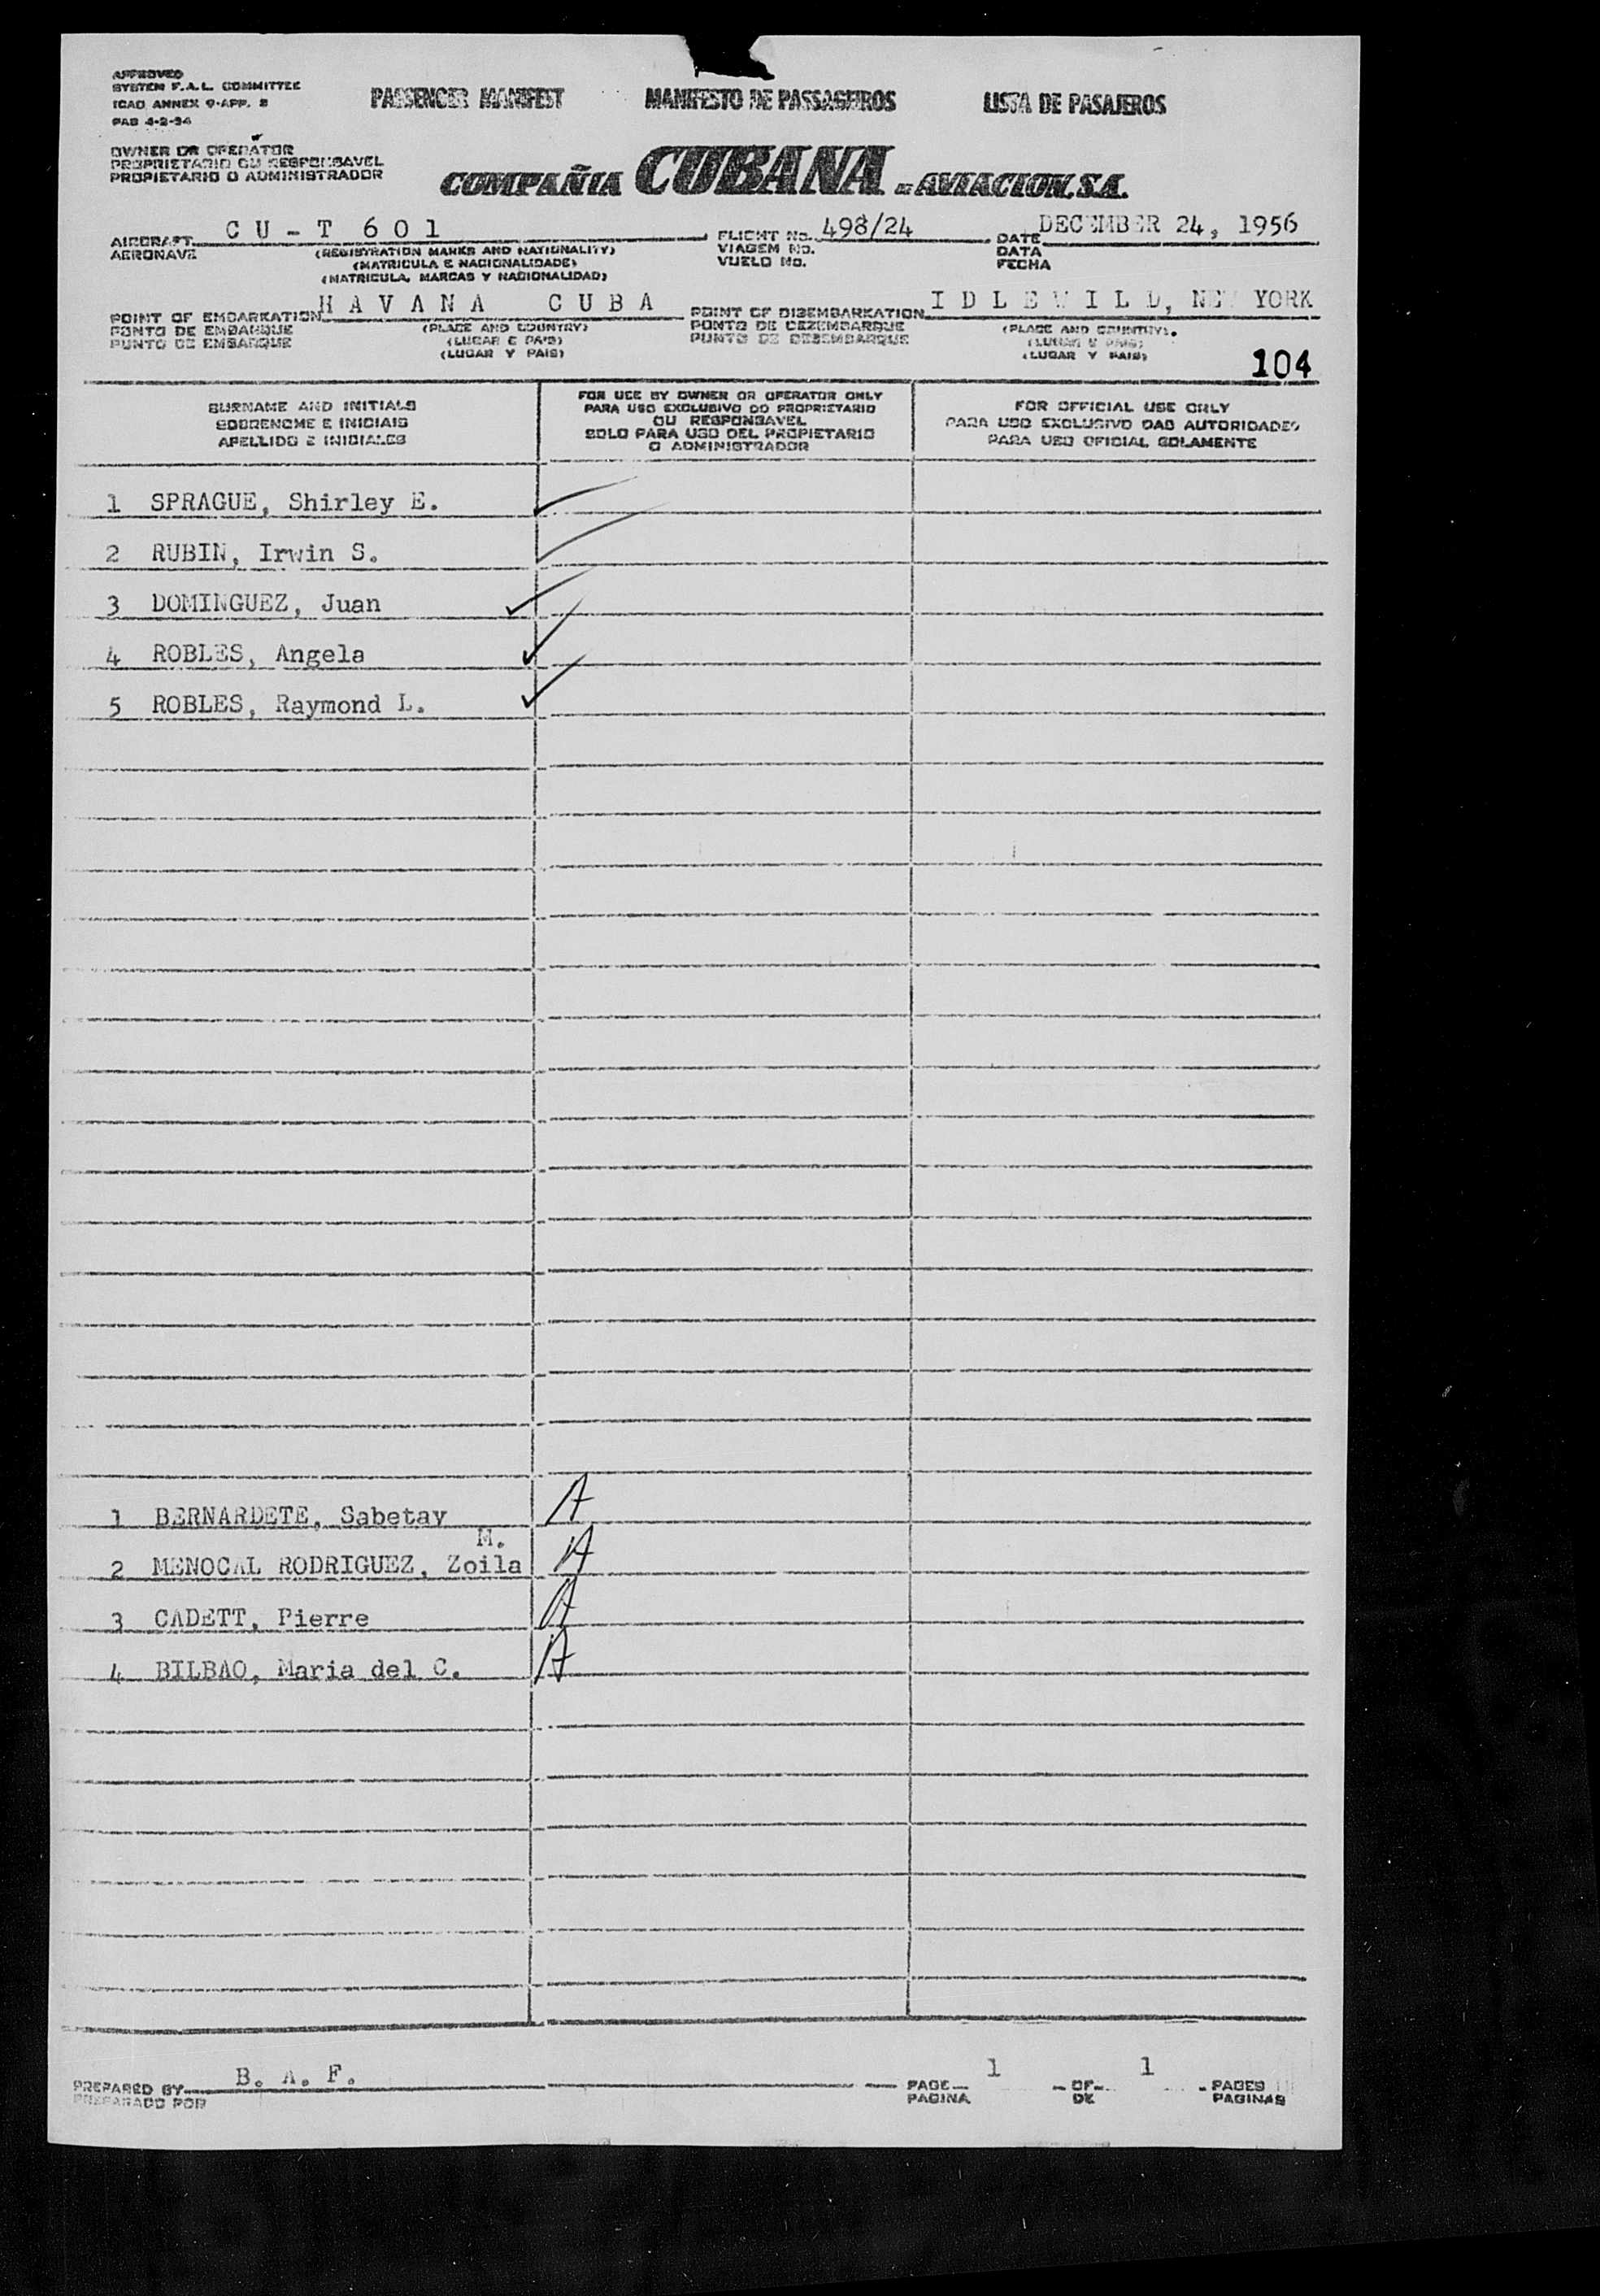 APPROVED
SYSTEM F.A.L. COMMITTEE
ICAO ANNEX 9-APP. 2
PAS 4-2-54
PASSENGER MANIFEST MANIFESTO DE PASSAGEIROS LISTA DE PASAJEROS
OWNER OR OPERATOR
PROPRIETARIO OU RESPONSAVEL
PROPIETARIO O ADMINISTRADOR
COMPAÑIA CUBANA DE AVIACION, S.A.
AIRCRAFT CU-T 601 FLIGHT No. 498/24 DATE DECEMBER 24, 1956
AERONAVE (REGISTRATION MARKS AND NATIONALITY) VIAGEM No. DATA
(MATRICULA E NACIONALIDADE) VUELO No. FECHA
(MATRICULA, MARCAS Y NACIONALIDAD)
POINT OF EMBARKATION HAVANA CUBA POINT OF DISEMBARKATION IDLEWILD, NEW YORK
PONTO DE EMBARQUE (PLACE AND COUNTRY) PONTO DE DEZEMBARQUE (PLACE AND COUNTRY)
PUNTO DE EMBARQUE (LUGAR E PAIS) PUNTO DE DESEMBARQUE (LUGAR E PAIS)
(LUGAR Y PAIS) (LUGAR Y PAIS)
104
SURNAME AND INITIALS
SOBRENOME E INICIAIS
APELLIDO E INICIALES
FOR USE BY OWNER OR OPERATOR ONLY
PARA USO EXCLUSIVO DO PROPRIETARIO
OU RESPONSAVEL
SOLO PARA USO DEL PROPIETARIO
O ADMINISTRADOR
FOR OFFICIAL USE ONLY
PARA USO EXCLUSIVO DAS AUTORIDADES
PARA USO OFICIAL SOLAMENTE
1 SPRAGUE, Shirley E.
2 RUBIN, Irwin S.
3 DOMINGUEZ, Juan
4 ROBLES, Angela
5 ROBLES, Raymond L.
1 BERNARDETE, Sabetay A
M.
2 MENOCAL RODRIGUEZ, Zoila A
3 CADETT, Pierre A
4 BILBAO, Maria del C. A
PREPARED BY B. A. F. PAGE 1 OF 1 PAGES
PREPARADO POR PAGINA DE PAGINAS